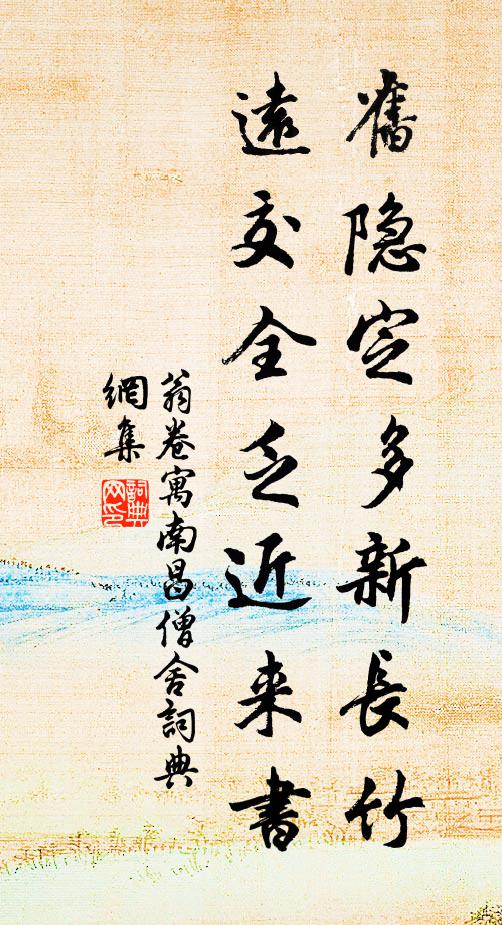 舊隐定多新長竹
遠交全乏近来書
翁卷寓南昌僧舍詞典
網集
詞典
网印